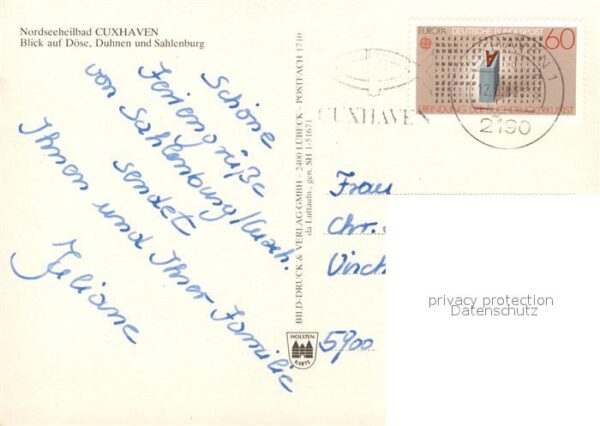 Nordseeheilbad CUXHAVEN
Blick auf Döse, Duhnen und Sahlenburg
Schöne
Feriengrüße
von Sahlenburg/Cuxh.
sendet
Ihnen und Ihrer Familie
Juliane
BILD-DRUCK & VERLAG GMBH - 2400 LÜBECK - POSTFACH 1710
da Luftaufn., gen. SH 1-51671
HOLSTEN
KARTE
EUROPA DEUTSCHE BUNDESPOST 60
ERFINDUNG DER BUCHDRUCKERKUNST
CUXHAVEN
1
12
2190
Frau
Chr.
5900
privacy protection
Datenschutz